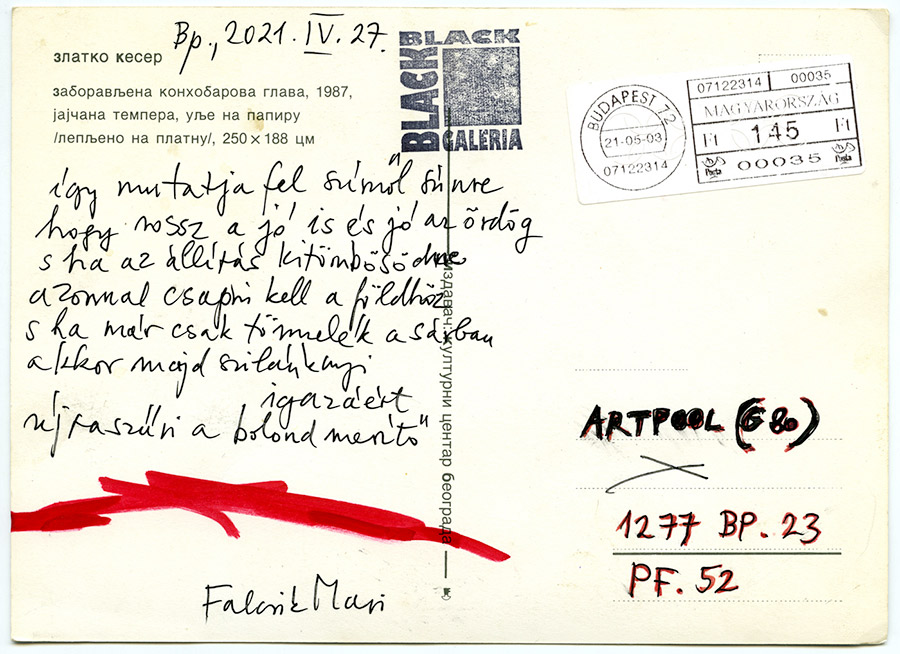 Bp., 2021. IV. 27.
златко кесер
заборављена конхобарова глава, 1987,
јајчана темпера, уље на папиру
/лепљено на платну/, 250 × 188 цм
BLACK
BLACK
GALERIA
BUDAPEST 72
21-05-03
07122314
07122314 00035
MAGYARORSZÁG
Ft 145 Ft
Posta 00035 Posta
így mutatja fel színről színre
hogy rossz a jó is és jó az ördög
s ha az állítás kitömbösödne
azonnal csapni kell a földhöz
s ha már csak törmelék a sárban
akkor majd szilánknyi
igazáért
újraszűri a bolond merítő
издавач: културни центар београда
ARTPOOL (G 80)
1277 BP. 23
PF. 52
Falcsik Mari